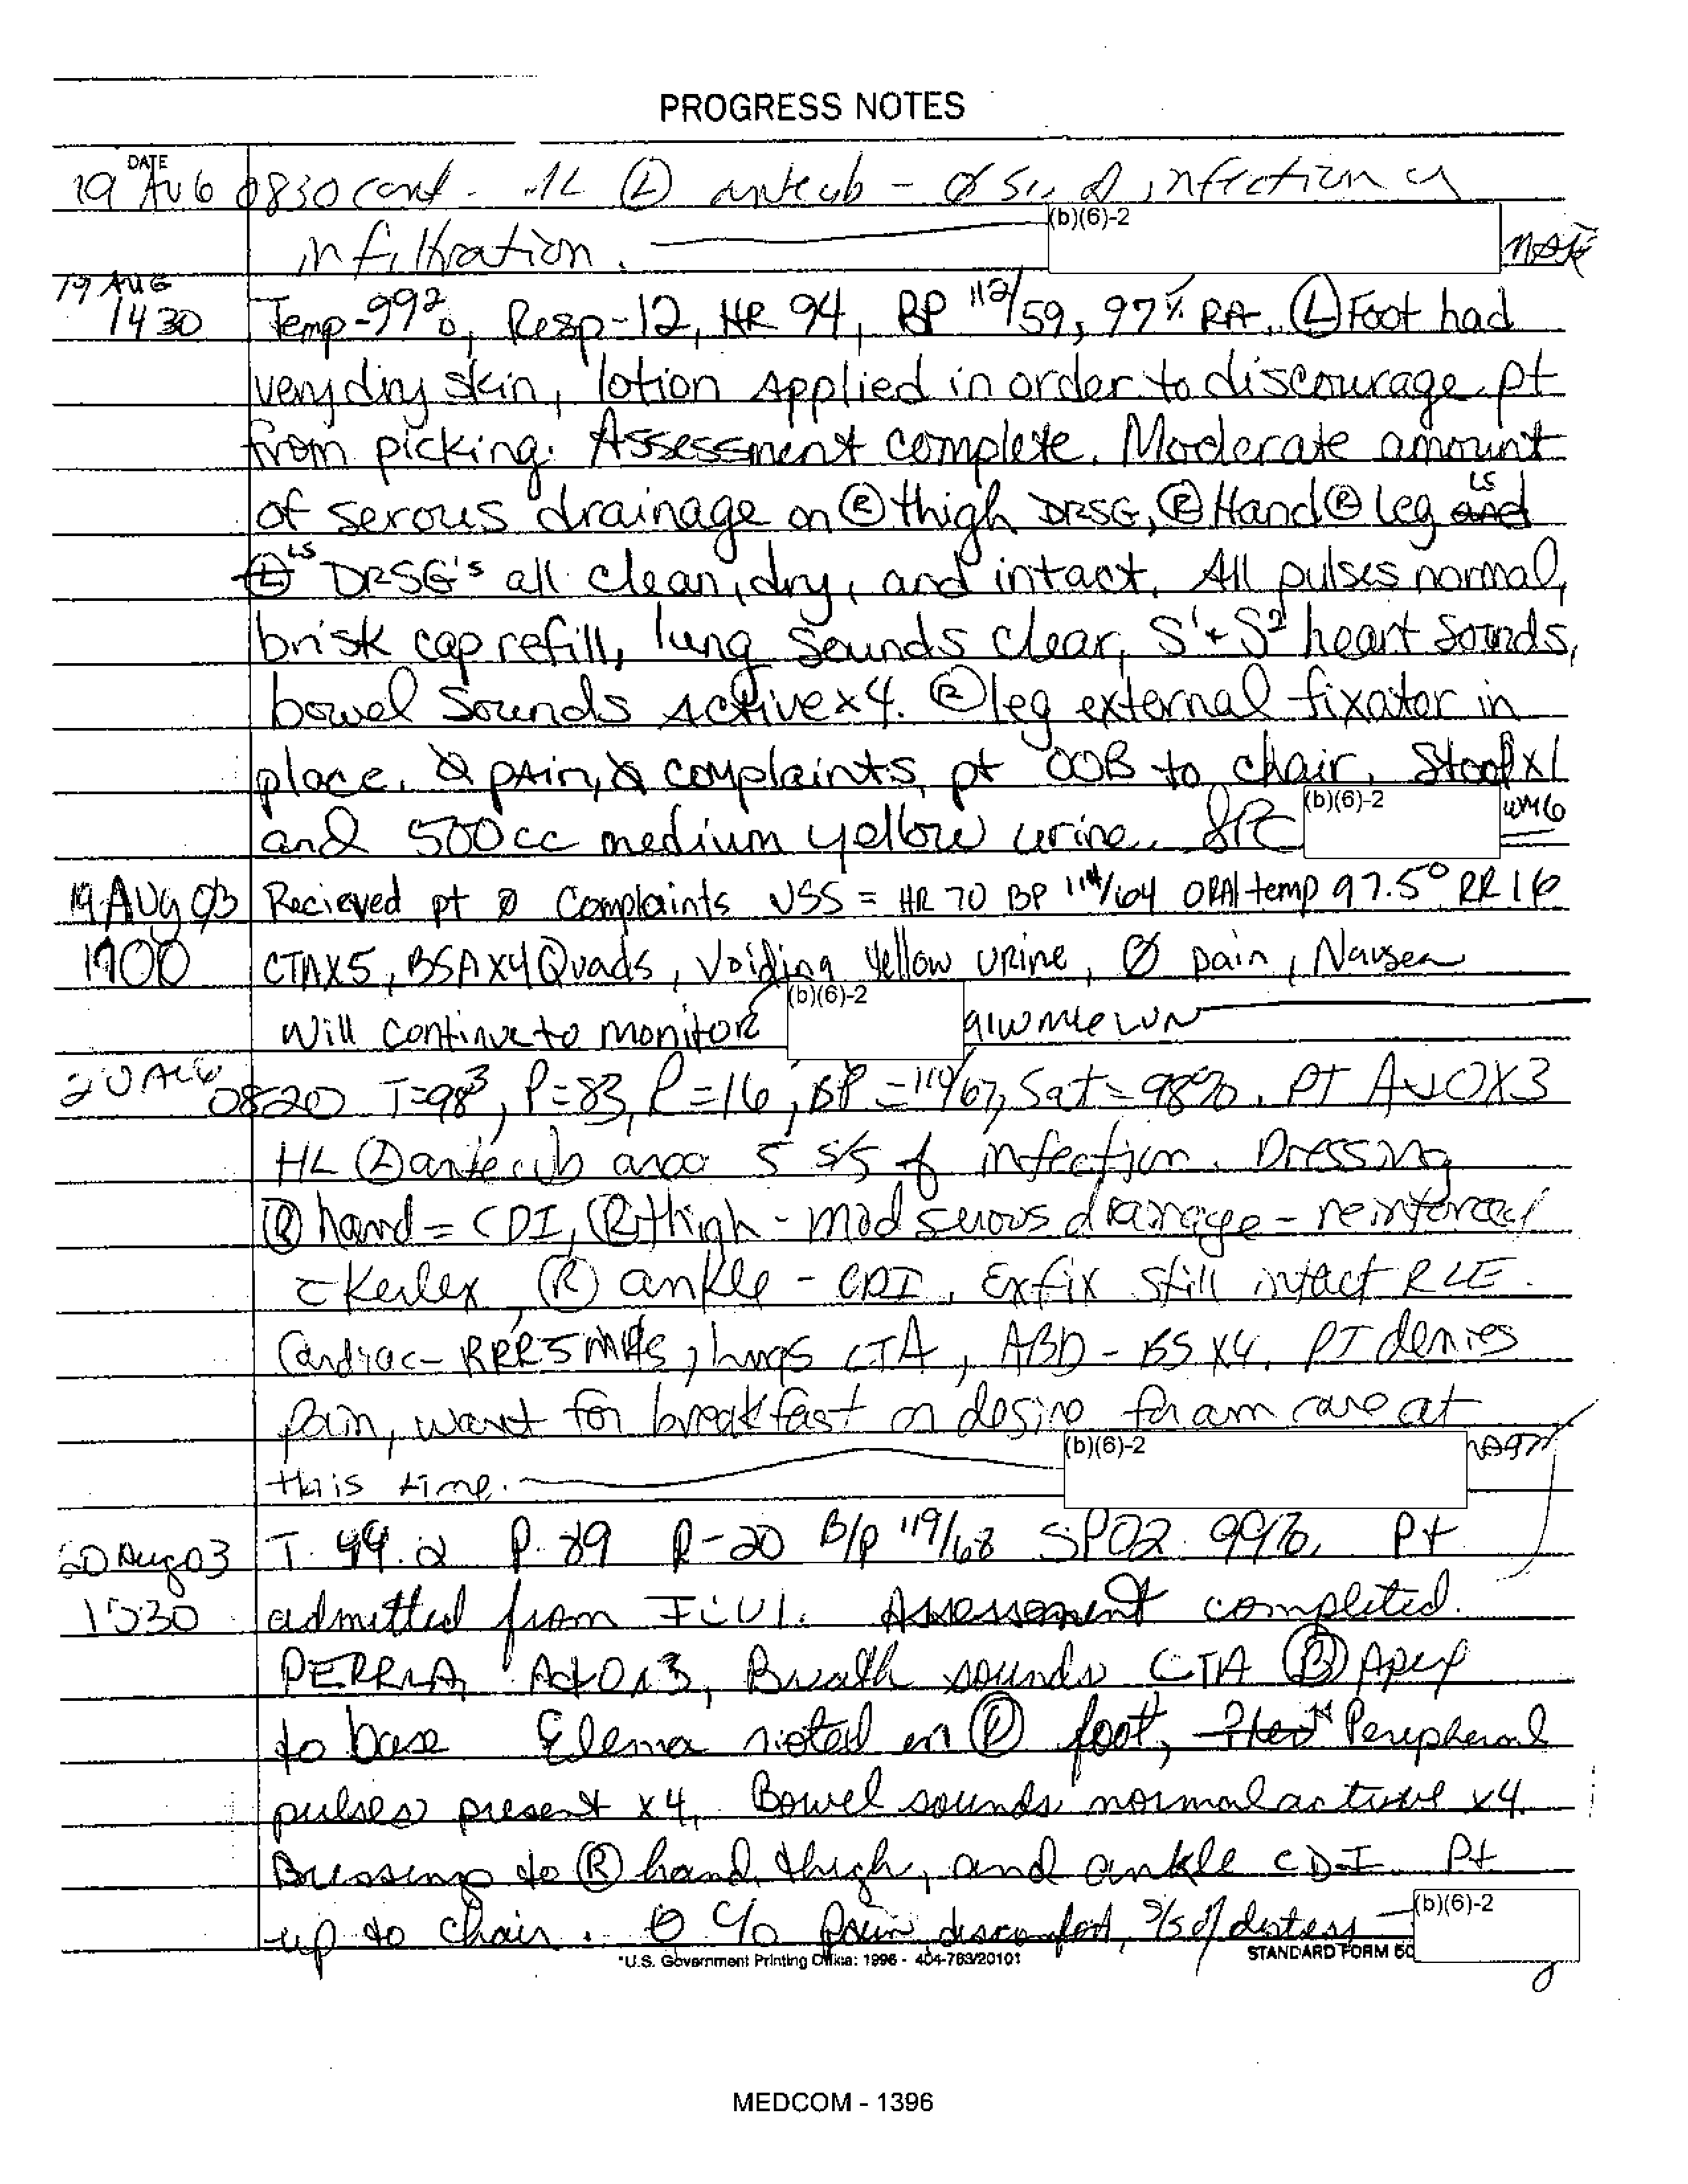 PROGRESS NOTES
DATE
19 AUG 0830 cont - HL Ⓛ antecub - Ø infection or
(b)(6)-2
infiltration.
19 AUG
1430 Temp-99²°, Resp-12, HR 94, BP 112/59, 97% RA. Ⓛ Foot had
very dry skin, lotion Applied in order to discourage pt
from picking. Assessment complete. Moderate amount
of serous drainage on Ⓡ thigh DRSG, Ⓡ Hand Ⓡ leg and LS
Ⓛ LS DRSG's all clean, dry, and intact. All pulses normal,
brisk cap refill, lung sounds clear, S¹ + S² heart sounds,
bowel sounds active x 4. Ⓡ leg external fixator in
place. Ø pAin, Ø complaints, pt OOB to chair, Stool x 1
and 500cc medium yellow urine. SPC (b)(6)-2 WM6
19 Aug 03 Recieved pt Ø Complaints VSS = HR 70 BP 114/64 ORAl temp 97.5° RR 16
1700 CTAX5, BSAX4 Quads, Voiding Yellow Urine, Ø pain, Nausea
Will continue to monitor (b)(6)-2 91WM6 LVN
20 AUG 0820 T=98³, P=83, R=16, BP=110/67, Sat=98%. PT A+OX3
HL Ⓛ antecub area s̄ s/s of infection. Dressing
Ⓡ hand = CDI, Ⓡ thigh - mod serous drainage - reinforced
c̄ Kerlex, Ⓡ ankle - CDI, Exfix still intact RLE.
Cardiac - RRR s̄ MRGs, lungs CTA, ABD - BS X4. PT denies
pain, want for breakfast or desire for am care at
(b)(6)-2
this time.
20 Aug 03 T. 99.2 P. 89 R-20 B/P 119/68 SPO2 99%. Pt
1530 admitted from ICU1. Assessment completed.
PERRLA, A+Ox3, Breath sounds CTA Ⓑ Apex
to base Edema noted in Ⓡ foot, Peripheral
pulses present x4, Bowel sounds normal active x4.
Dressing to Ⓡ hand, thigh, and ankle CDI Pt
up to chair. Ø c/o pain, discomfort, s/s of distress (b)(6)-2
*U.S. Government Printing Office: 1996 - 404-763/20101
STANDARD FORM 50
MEDCOM - 1396